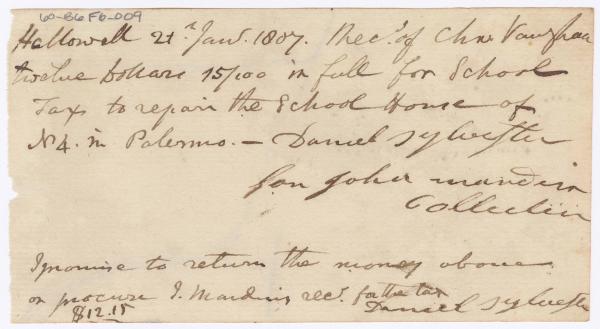 60-B6F6-009
Hallowell 21st Janr. 1807. Recd. of Chs. Vaughan
twelve Dollars 15/100 in full for School
Tax to repair the School House of
No 4. in Palermo. — Daniel Sylvester
for John
Collector
I promise to return the money above
or procure J. rect. for the tax
$12.15 Daniel Sylvester